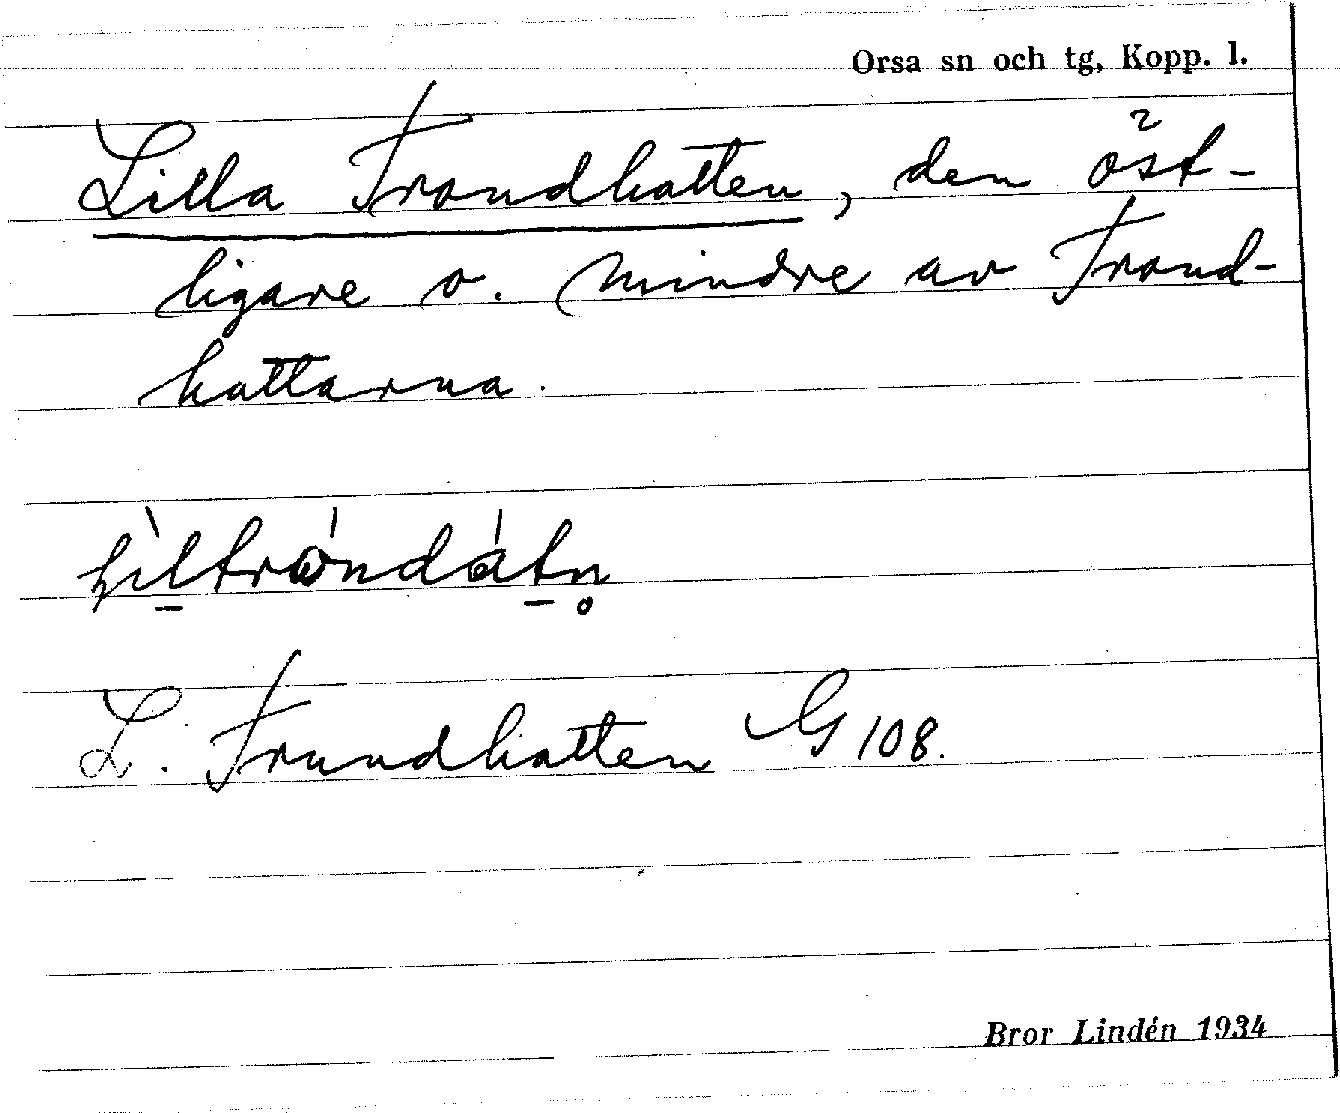 Orsa sn och tg, Kopp. l.
Lilla Trondhatten, den öst-
ligare o. mindre av Trond-
hattarna.
L. Trundhatten G 108.
Bror Lindén 1934